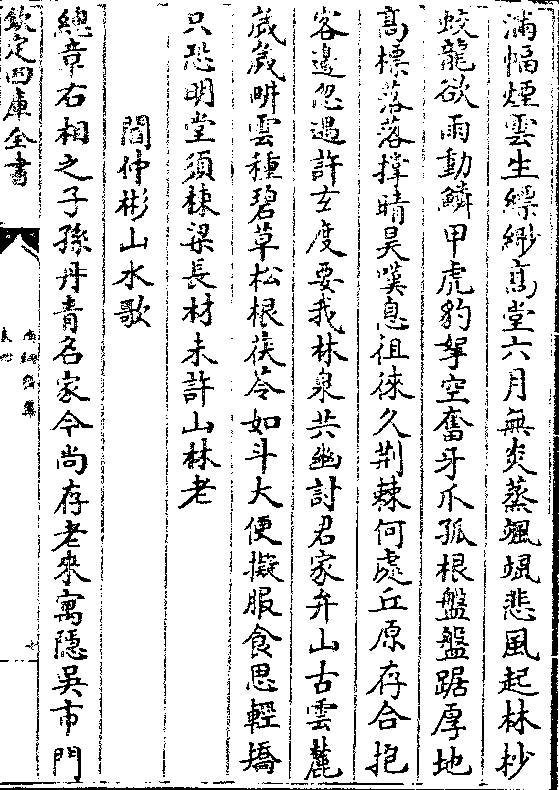 滿幅煙雲生縹緲高堂六月無炎蒸颯颯悲風起林杪
蛟龍欲雨動鱗甲虎豹拏空奮牙爪孤根盤盤踞厚地
高標落落撑晴昊嘆息徂徠久荆棘何處丘原存合抱
客邊忽遇許玄度要我林泉共幽討君家弁山古雲麓
歲歲畊雲種碧草松根茯苓如斗大便擬服食思輕矯
只恐明堂須棟梁長材未許山林老
閻仲彬山水歌
總章右相之子孫丹青名家今尚存老來寓隱吳市門
欽定四庫全書